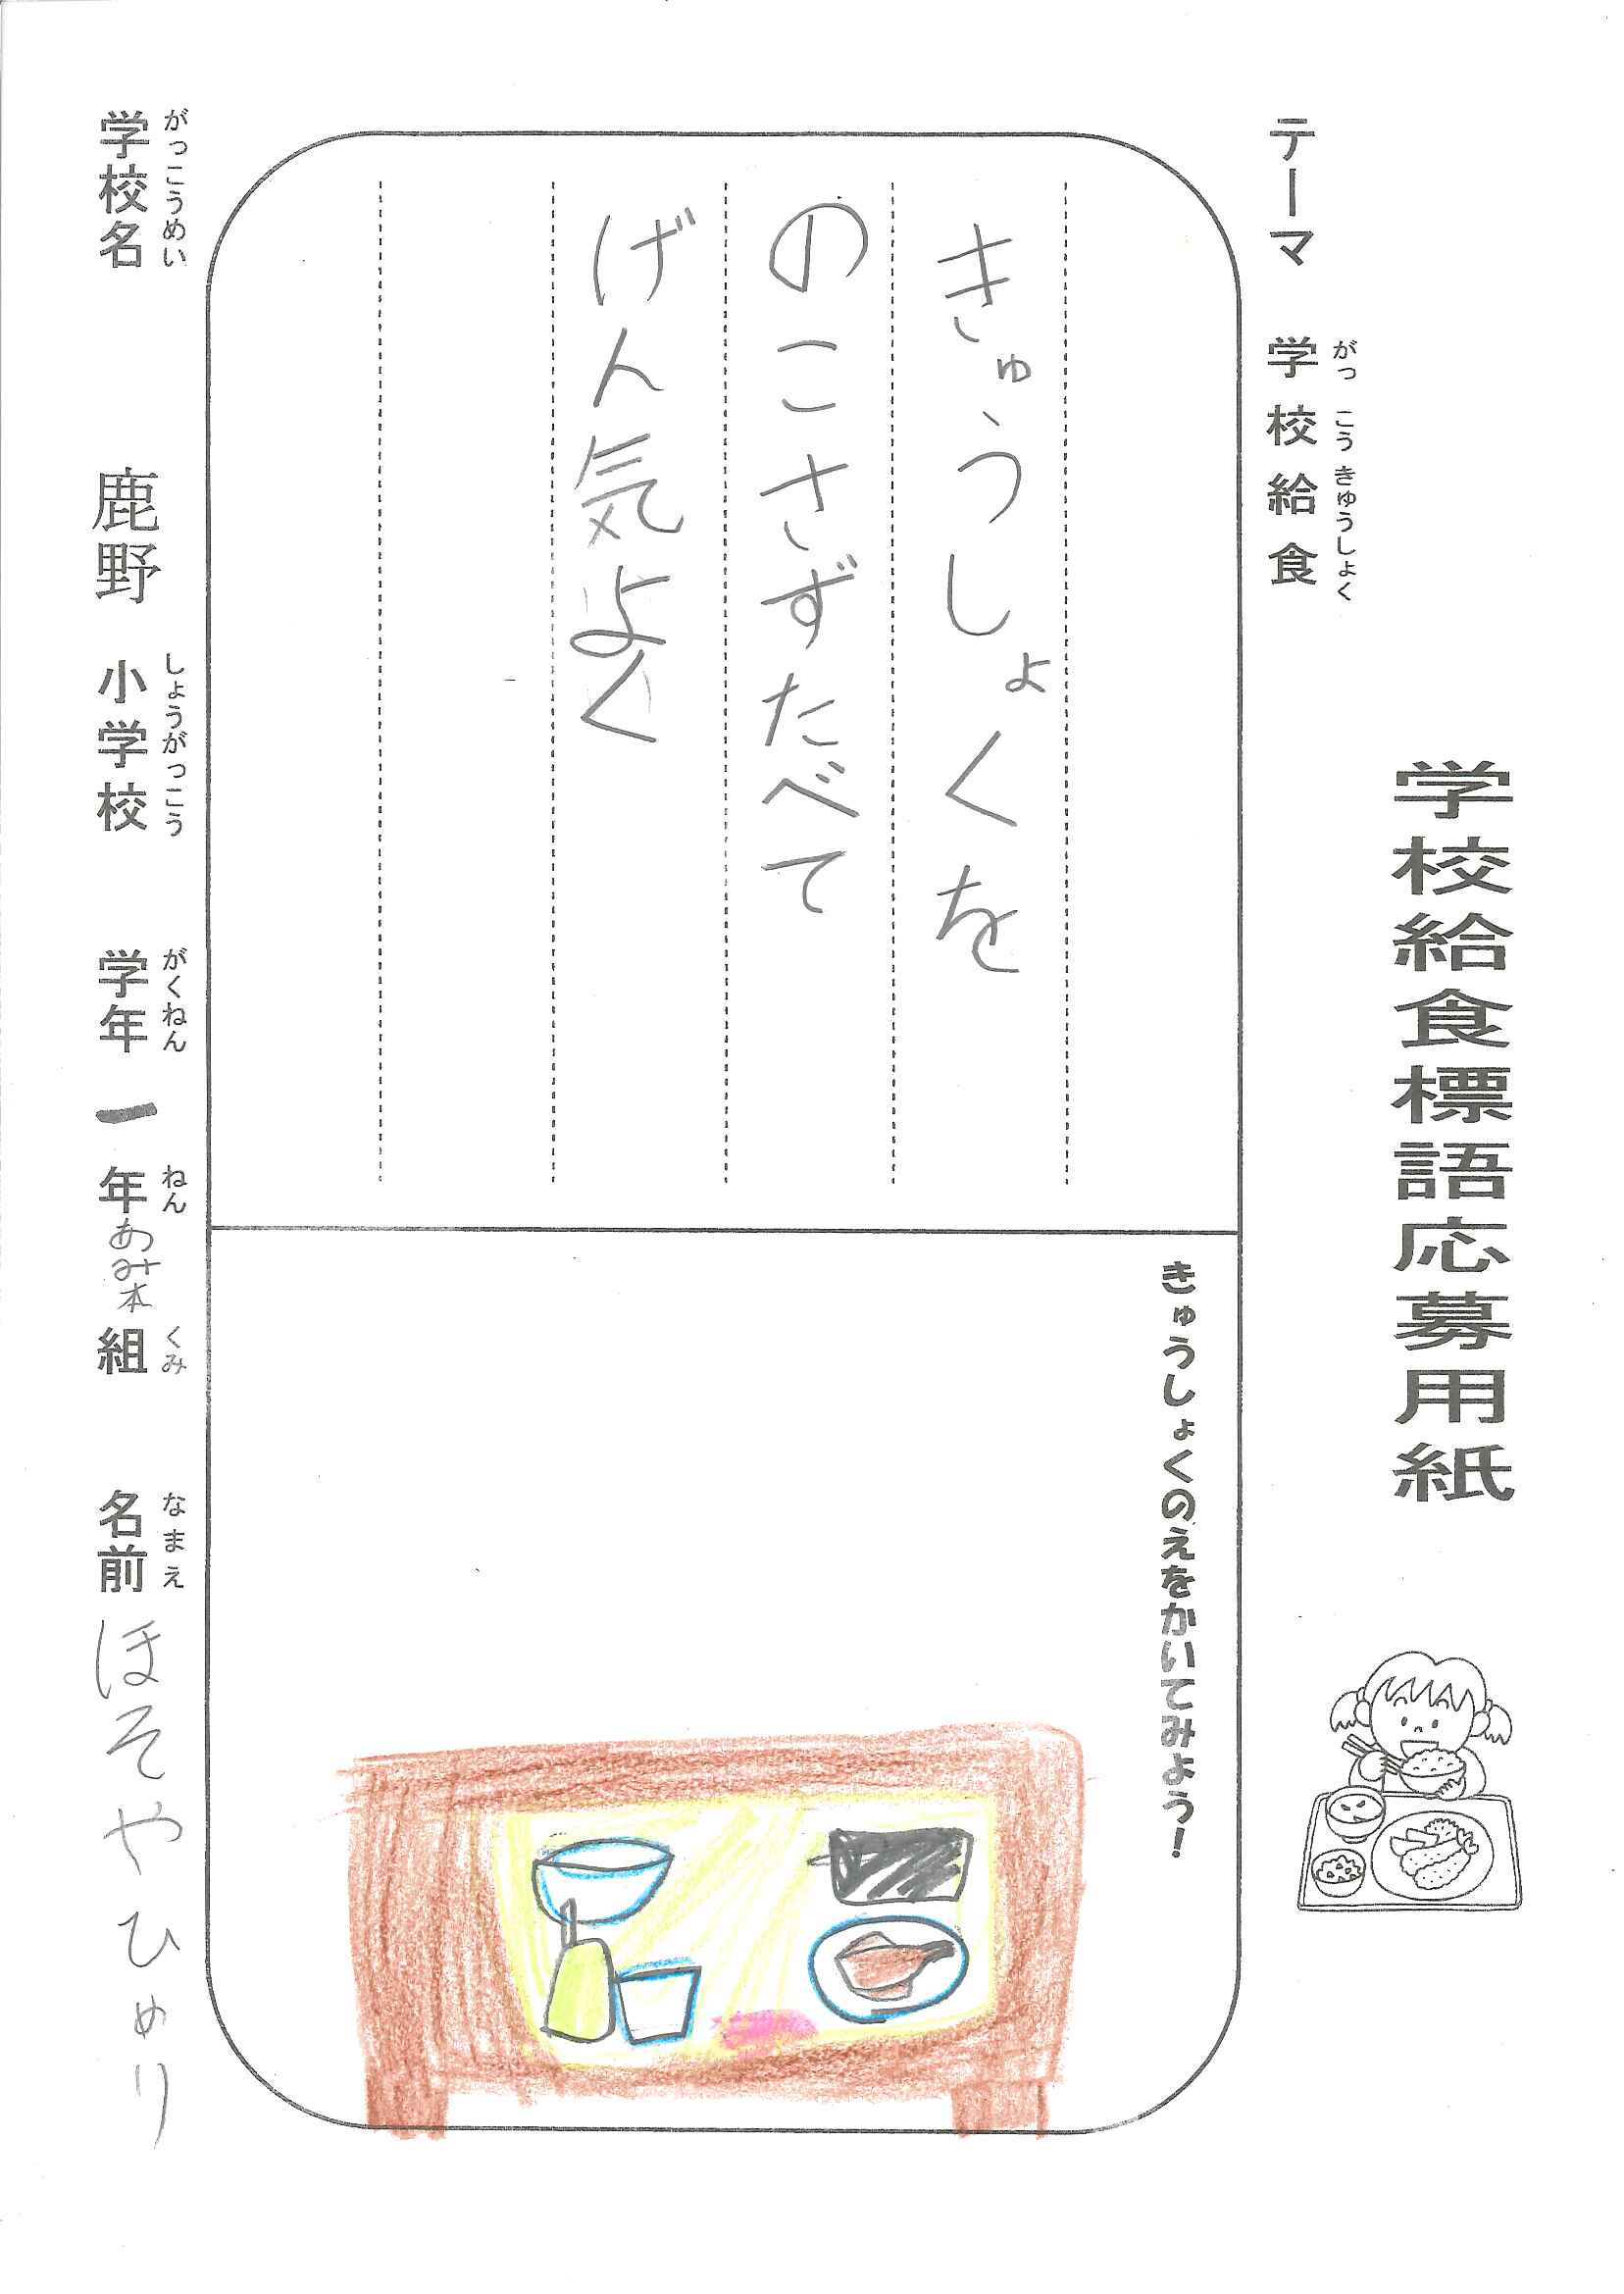 学校給食標語応募用紙
テーマ 学校給食
がっこうきゅうしょく
きゅうしょくを
のこさずたべて
げん気よく
きゅうしょくのえをかいてみよう!
がっこうめい しょうがっこう がくねん ねん くみ なまえ
学校名 鹿野 小学校 学年 一 年 あみ本 組 名前 ほそやひめり